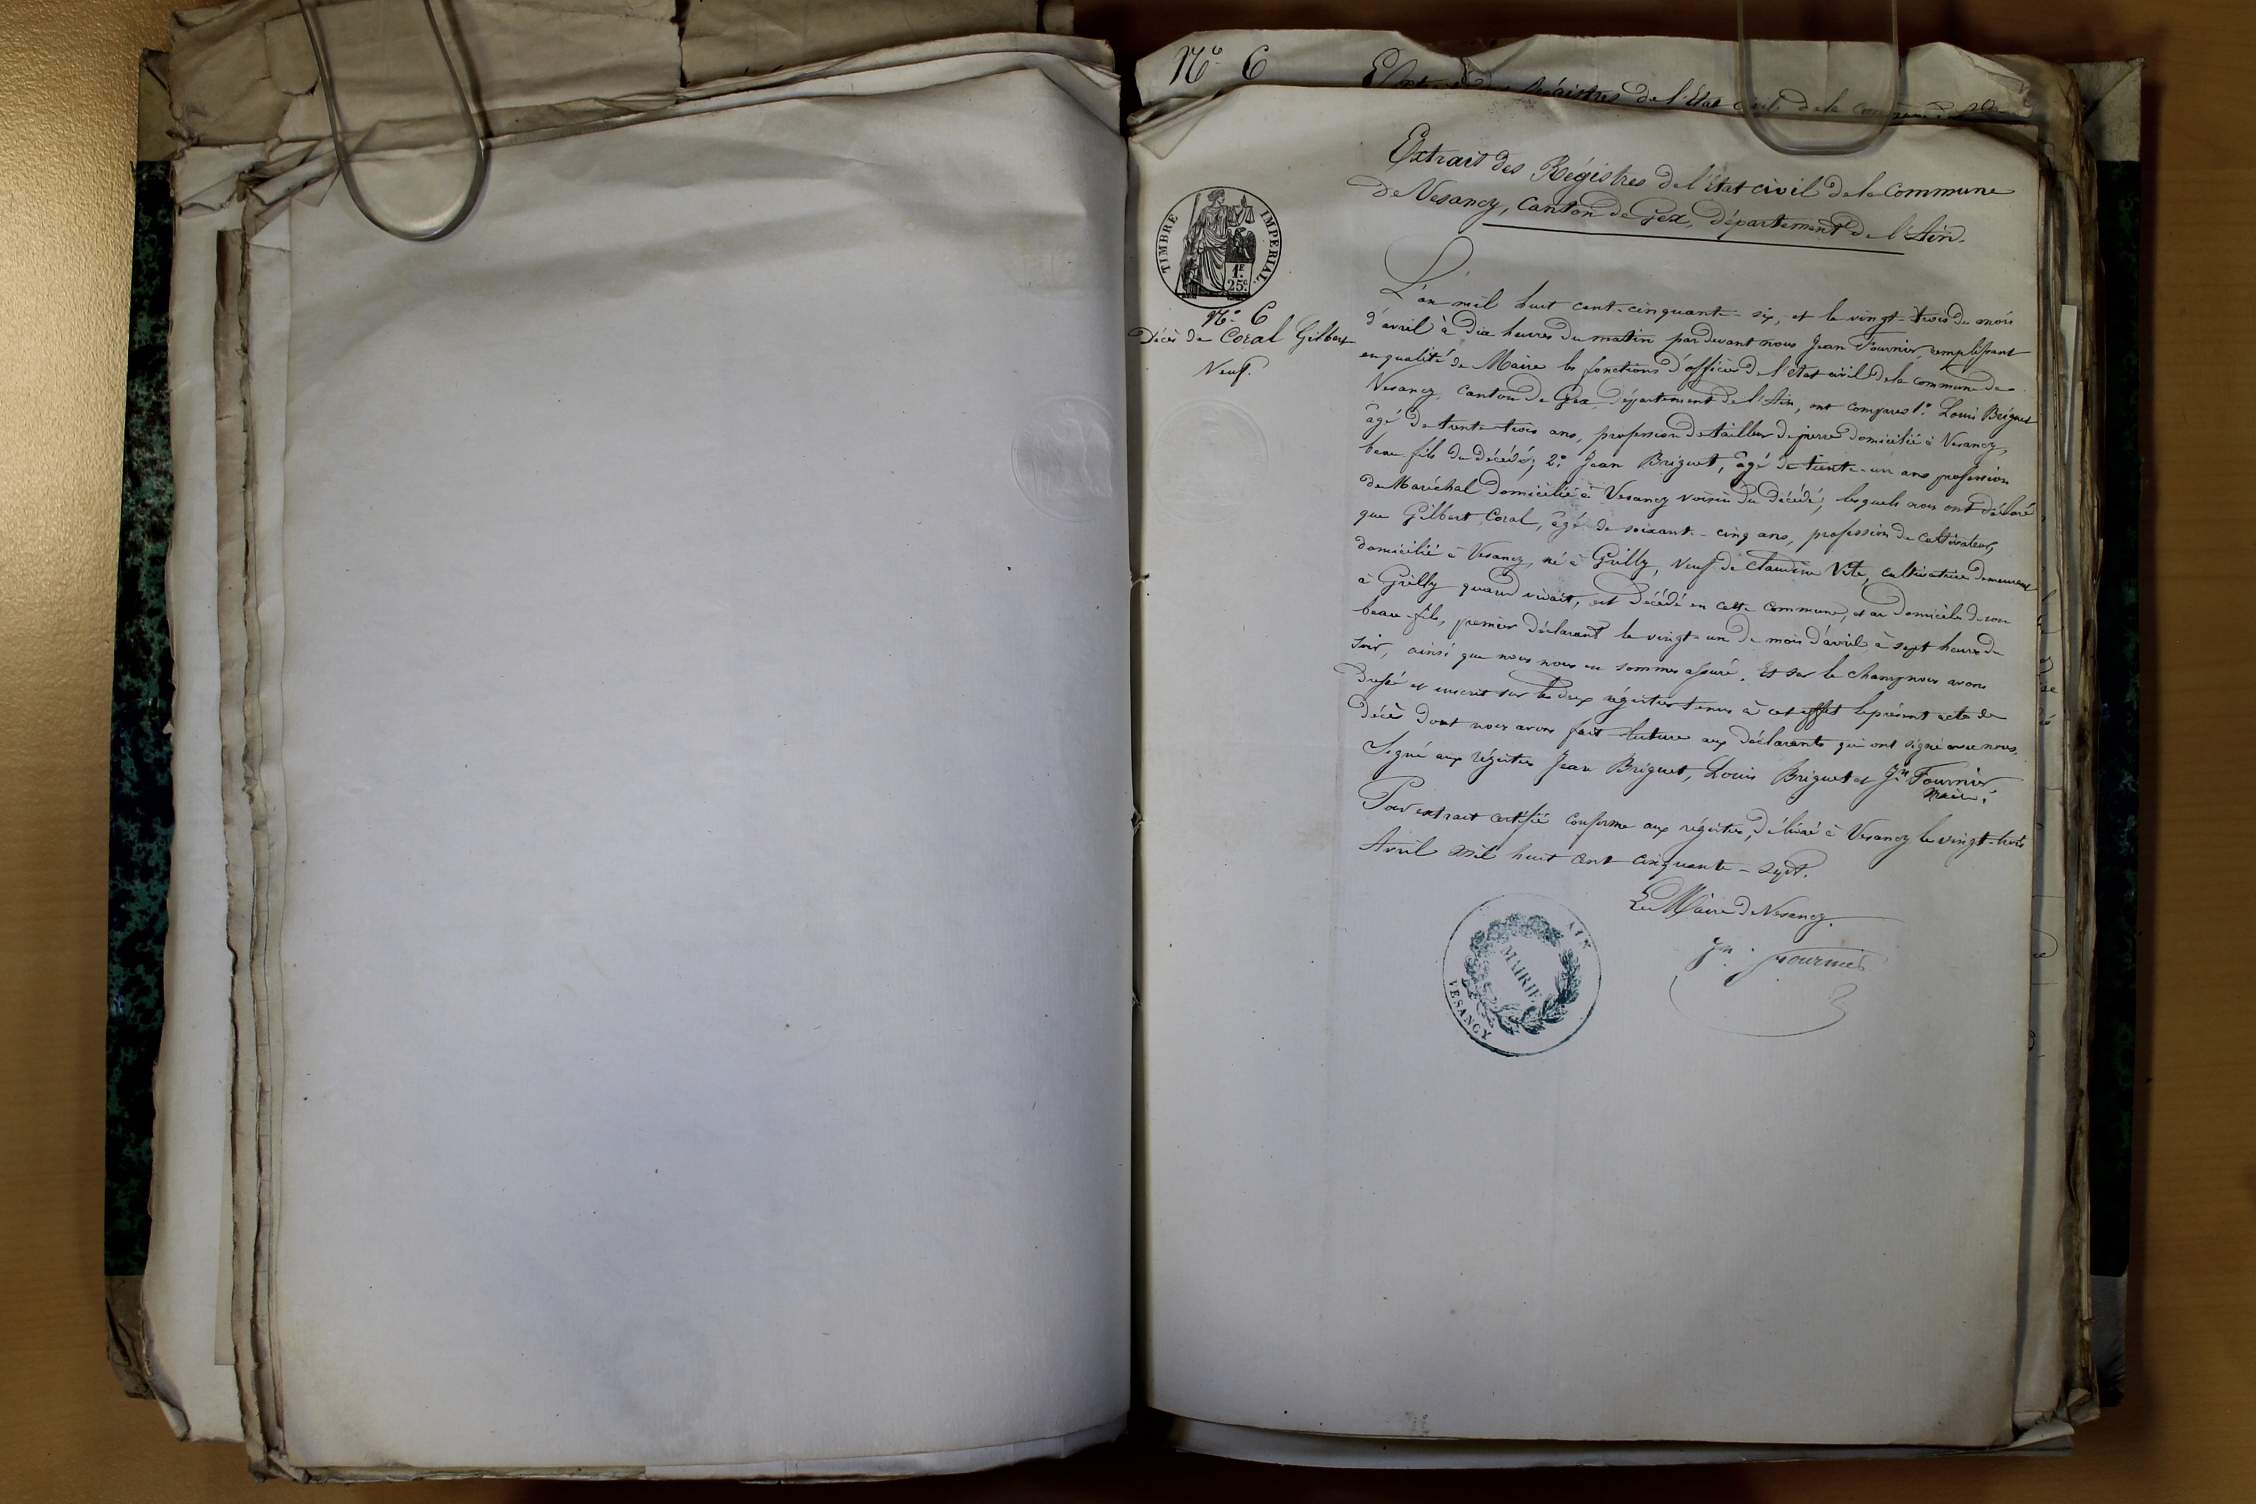 N° 6
Extrait des Régistres de l'Etat civil de la commune
Extrait des Régistres de l'Etat civil de la Commune
De Vesancy, Canton de Gex, Département de l'Ain.
TIMBRE IMPERIAL.
1F.
25c.
N° 6
Décès de Coral Gilbert
Veuf.
L'an mil huit cent-cinquante-six, et le vingt-trois du mois
d'avril à dix heures du matin par devant nous Jean Fournier, remplissant
en qualité de Maire les fonctions d'officier de l'état civil de la commune de
Vesancy, Canton de Gex, Département de l'Ain, ont comparu 1° Louis Briguet
âgé de trente-trois ans, profession de tailleur de pierre domicilié à Vesancy,
beau-fils du décédé; 2° Jean Briguet, âgé de trente-un ans profession
de Maréchal domicilié à Vesancy voisin du décédé; lesquels nous ont déclaré
que Gilbert Coral, âgé de soixante-cinq ans, profession de cultivateur,
domicilié à Vesancy, né à Grilly, veuf de Claudine Vite, cultivatrice demeurant
à Grilly quand vivait, est décédé en cette commune, et au domicile de son
beau-fils, premier déclarant le vingt-un du mois d'avril à sept heures du
soir, ainsi que nous nous en sommes assuré. Et sur le champ nous avons
dressé et inscrit sur les deux régistres tenus à cet effet le présent acte de
décès dont nous avons fait lecture aux déclarants qui ont signé avec nous.
Signé aux régistres Jean Briguet, Louis Briguet et Jn Fournier,
Maire.
Pour extrait certifié conforme aux régistres, délivré à Vesancy le vingt-trois
Avril mil huit cent cinquante-sept.
Le Maire de Vesancy.
Jn. Fournier
AIN
MAIRIE
VESANCY